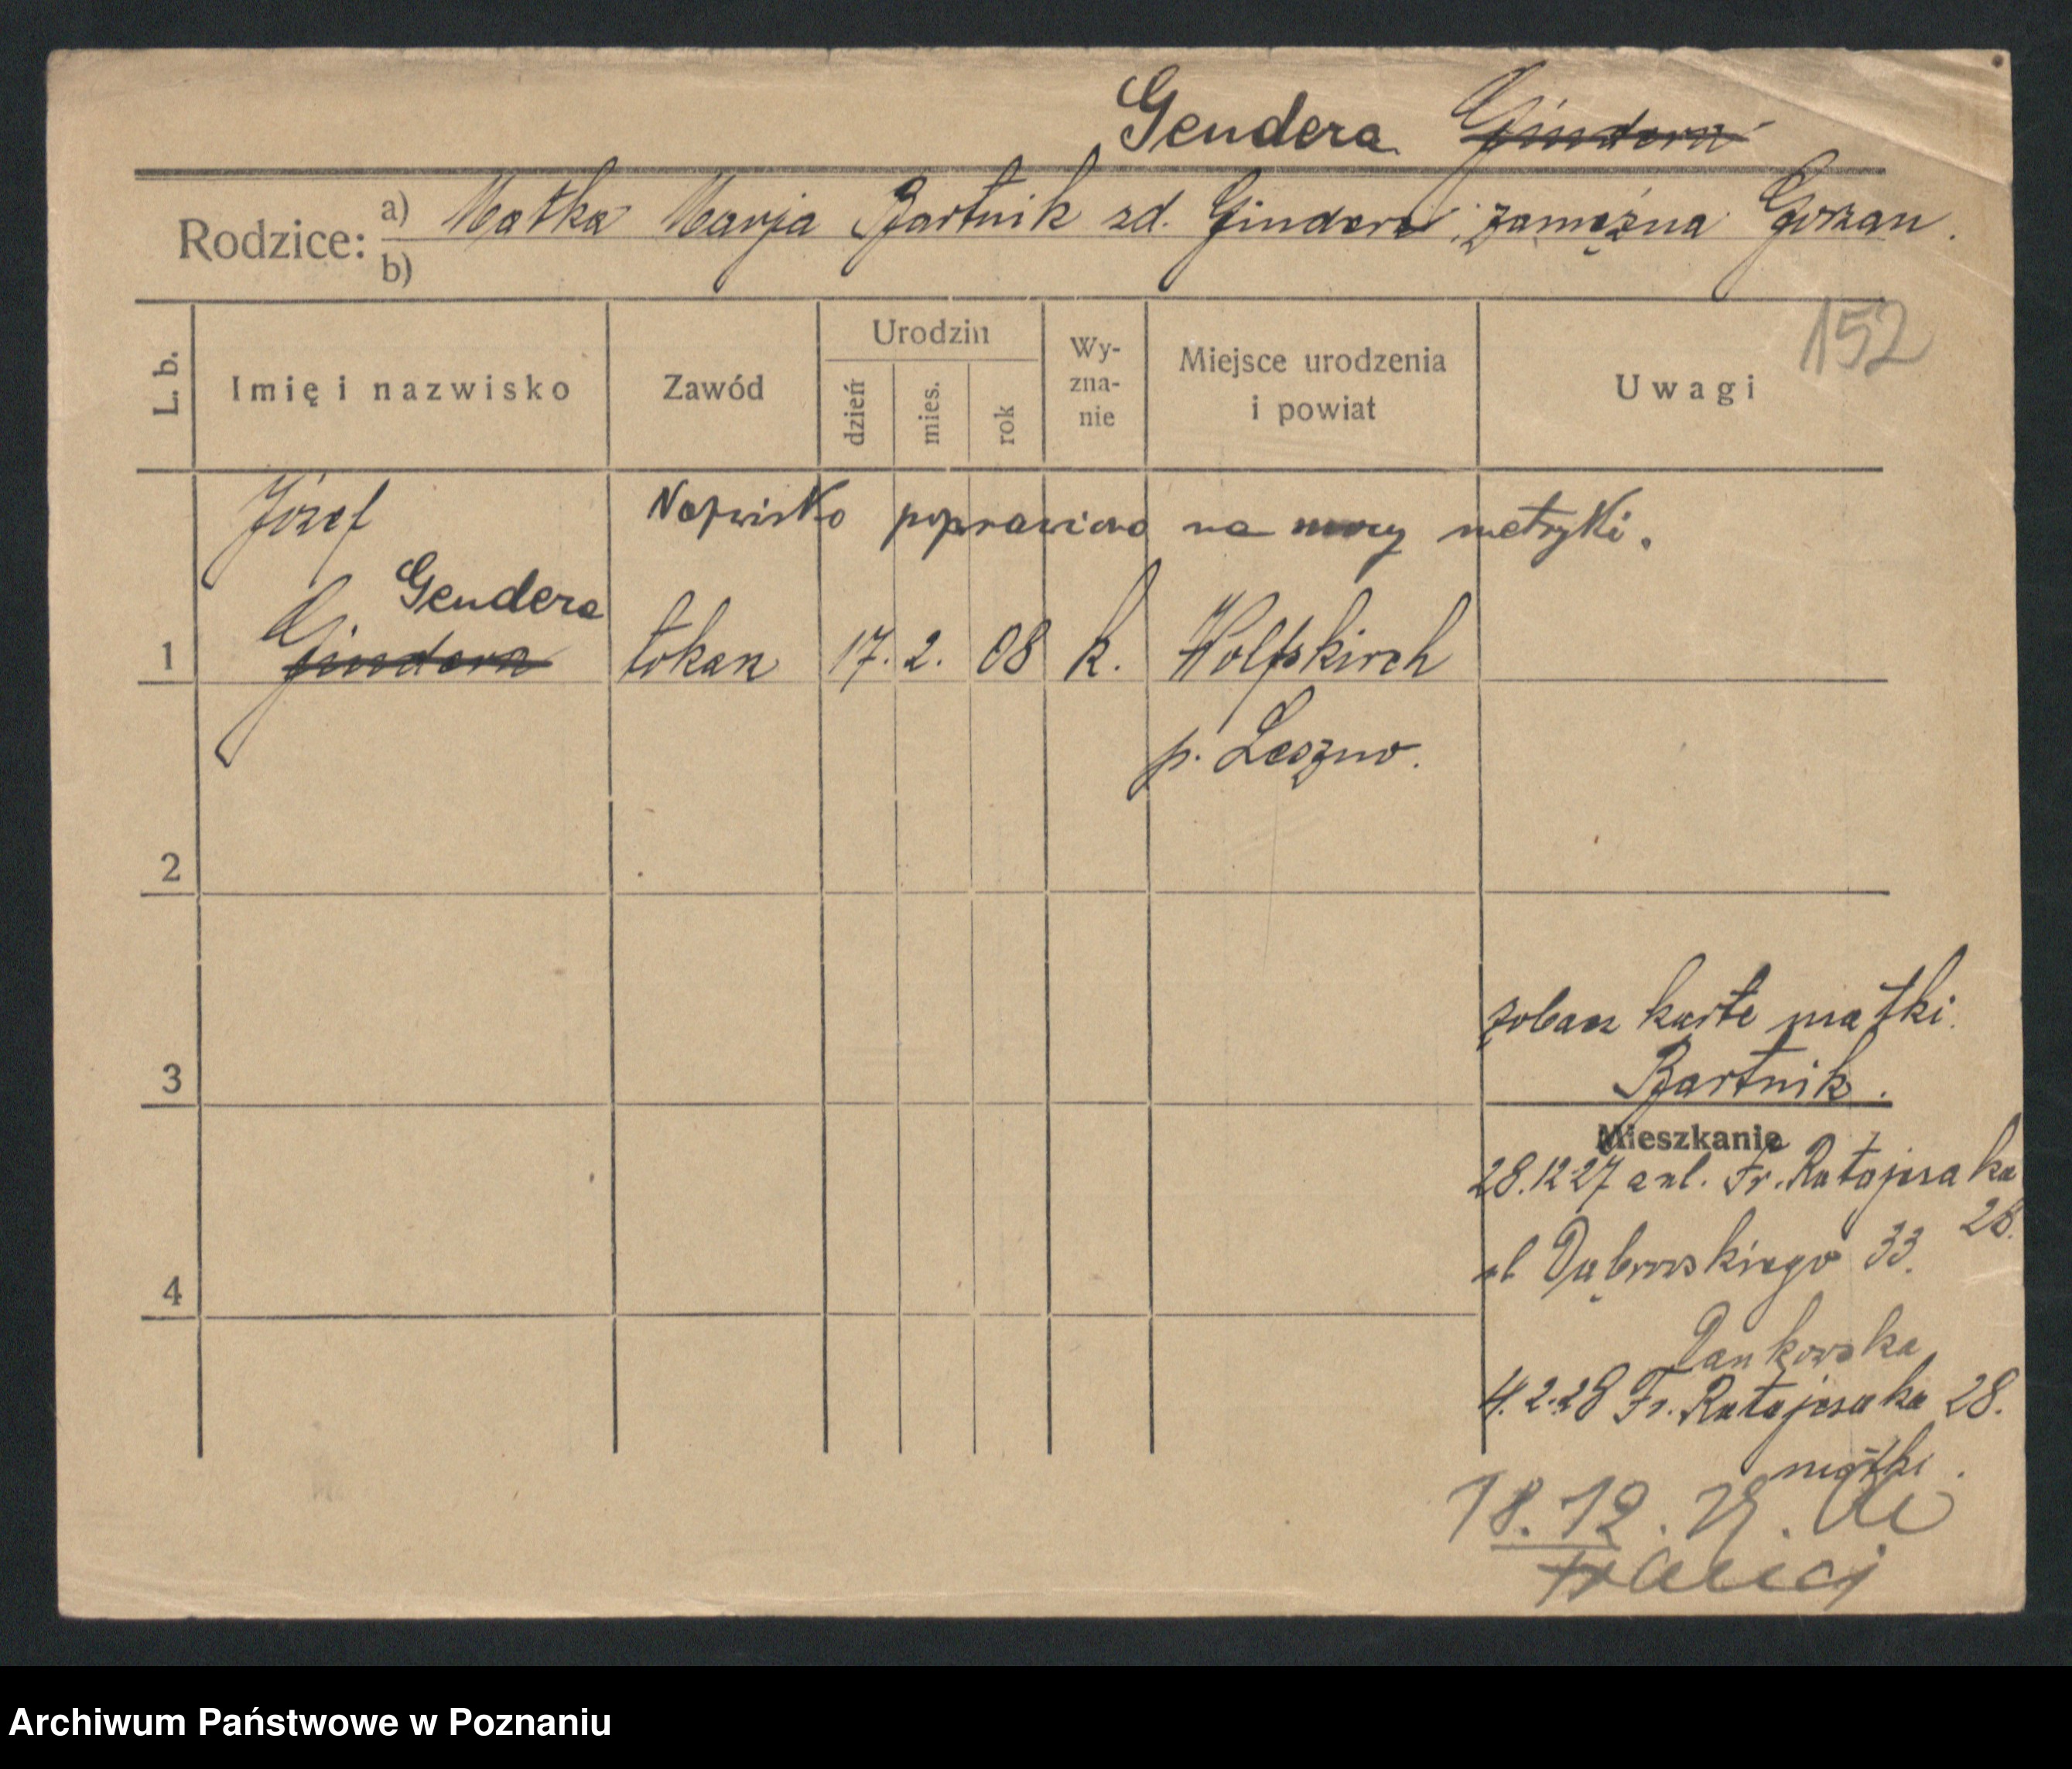 Gendera Gindera
Rodzice: a) Matka Marja Bartnik zd. Gindera, zamężna Gorzan.
b)
152
L. b. Imię i nazwisko Zawód Urodzin dzień mies. rok Wy-zna-nie Miejsce urodzenia i powiat Uwagi
Józef Nazwisko poprawiono na mocy metryki.
Gendera
1 Gindera tokarz 17. 2. 08 k. Wolfskirch
p. Leszno.
2
zobacz kartę matki
3 Bartnik.
Mieszkanie
28.12 27 a ul. Fr. Ratajczaka
28.
ul Dąbrowskiego 33.
4
Dankowska
4.2.28 Fr. Ratajczaka 28.
matki.
18.12.
Archiwum Państwowe w Poznaniu